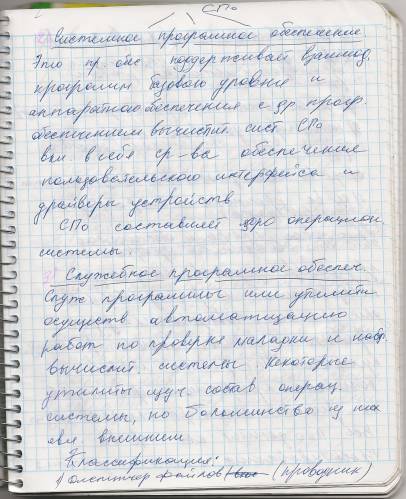 СПо
2) Системное програмное обеспечение.
Это пр. обе. поддерживай взаимод.
программ базового уровня и
аппаратного обеспечения с др. прогр.
обеспечением вычислит. сист. СПо
вкл. в себя ср-ва обеспечение
пользовательского интерфейса и
драйверы устройств
СПо составляет ядро операцион.
системы.
3) Служебное програмное обеспеч.
Служ программы или утилиты
осуществ автоматизацию
работ по проверке наладки и настр.
вычислит. системы. Некоторые
утилиты состав операц.
системы, но большинство из них
явл внешними
Классификация:
1) файлов (проводник)